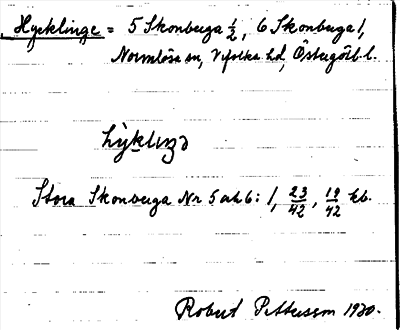 Hycklinge = 5 Skonberga ½, 6 Skonberga 1,
Normlösa sn, Vifolka hd, Östergötl. l.
Stora Skonberga Nr 5 och 6: 1, 23/42, 19/42 kb.
Robert Pettersson 1920.